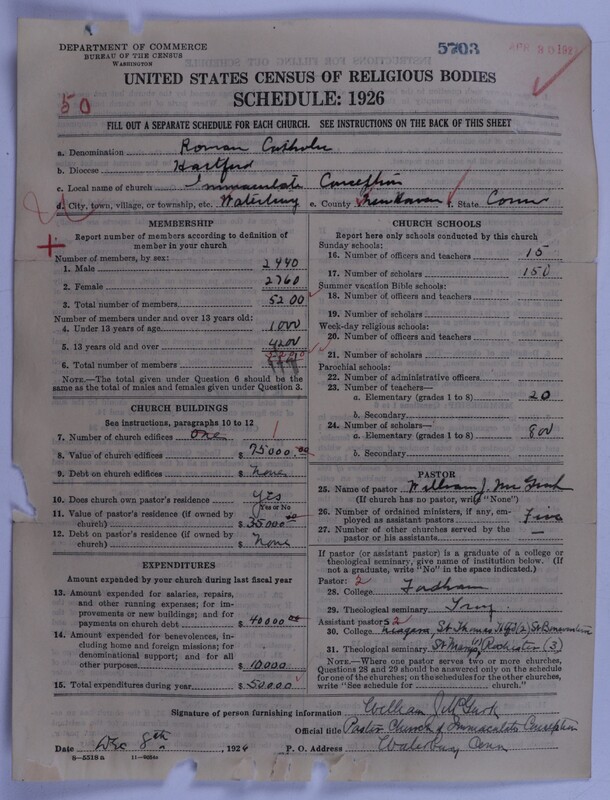 DEPARTMENT OF COMMERCE
BUREAU OF THE CENSUS
WASHINGTON
5703
APR 30 192
UNITED STATES CENSUS OF RELIGIOUS BODIES
SCHEDULE: 1926
50
FILL OUT A SEPARATE SCHEDULE FOR EACH CHURCH. SEE INSTRUCTIONS ON THE BACK OF THIS SHEET
a. Denomination Roman Catholic
b. Diocese Hartford
c. Local name of church Immaculate Conception
d. City, town, village, or township, etc. Waterbury e. County New Haven f. State Conn
MEMBERSHIP
Report number of members according to definition of member in your church
Number of members, by sex:
1. Male 2440
2. Female 2760
3. Total number of members 5200
Number of members under and over 13 years old:
4. Under 13 years of age 1000
5. 13 years old and over 4200
6. Total number of members 5200
NOTE.—The total given under Question 6 should be the same as the total of males and females given under Question 3.
CHURCH BUILDINGS
See instructions, paragraphs 10 to 12
7. Number of church edifices One 1
8. Value of church edifices $ 75000.00
9. Debt on church edifices $ None
10. Does church own pastor's residence Yes
Yes or No
11. Value of pastor's residence (if owned by church) $ 35000.00
12. Debt on pastor's residence (if owned by church) $ None
EXPENDITURES
Amount expended by your church during last fiscal year
13. Amount expended for salaries, repairs, and other running expenses; for improvements or new buildings; and for payments on church debt $ 40000.00
14. Amount expended for benevolences, including home and foreign missions; for denominational support; and for all other purposes $ 10000
15. Total expenditures during year $ 50000
CHURCH SCHOOLS
Report here only schools conducted by this church
Sunday schools:
16. Number of officers and teachers 15
17. Number of scholars 150
Summer vacation Bible schools:
18. Number of officers and teachers
19. Number of scholars
Week-day religious schools:
20. Number of officers and teachers
21. Number of scholars
Parochial schools:
22. Number of administrative officers
23. Number of teachers—
a. Elementary (grades 1 to 8) 20
b. Secondary
24. Number of scholars—
a. Elementary (grades 1 to 8) 800
b. Secondary
PASTOR
25. Name of pastor William J. McGurk
(If church has no pastor, write "None")
26. Number of ordained ministers, if any, employed as assistant pastors Five
27. Number of other churches served by the pastor or his assistants —
If pastor (or assistant pastor) is a graduate of a college or theological seminary, give name of institution below. (If not a graduate, write "No" in the space indicated.)
Pastor: 2
28. College Fordham
29. Theological seminary Troy
Assistant pastors 2
30. College Niagara, St Thomas (2) St Bonaventure
31. Theological seminary St Mary's Rochester (3)
NOTE.—Where one pastor serves two or more churches, Questions 28 and 29 should be answered only on the schedule for one of the churches; on the schedules for the other churches, write "See schedule for church."
Signature of person furnishing information William J McGurk
Official title Pastor Church of Immaculate Conception
Date Dec 8th, 1926 P. O. Address Waterbury Conn
8—5518 a